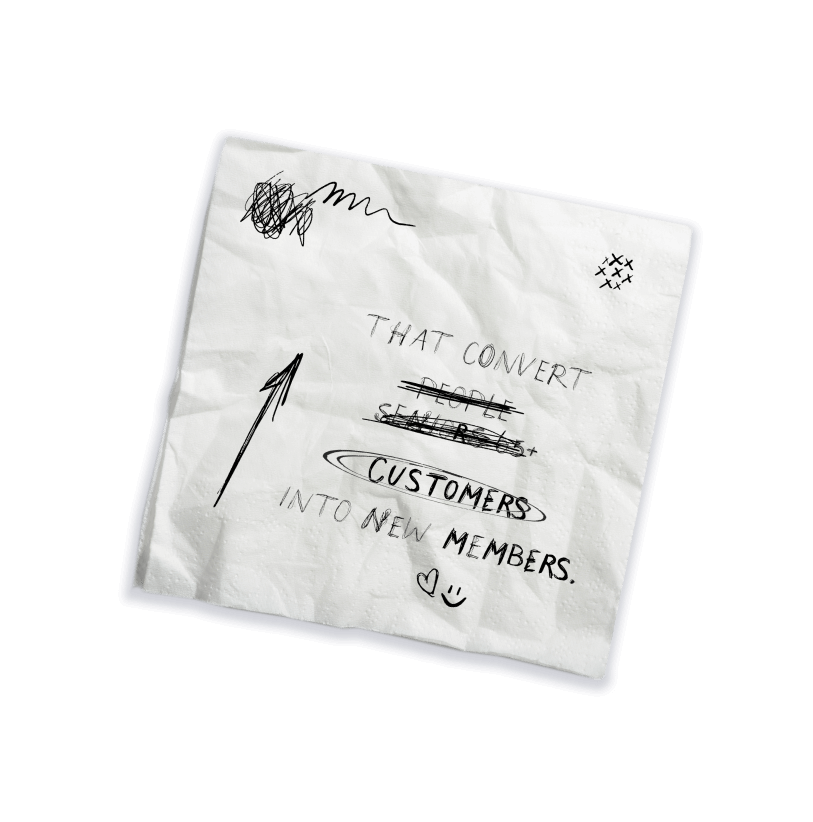 THAT CONVERT
PEOPLE
CUSTOMERS
INTO NEW MEMBERS.